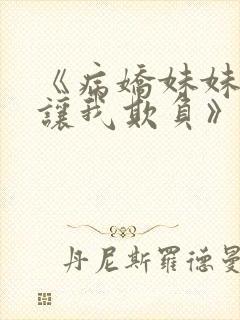 《病嬌妹妹
讓我欺負》
丹尼斯羅德曼